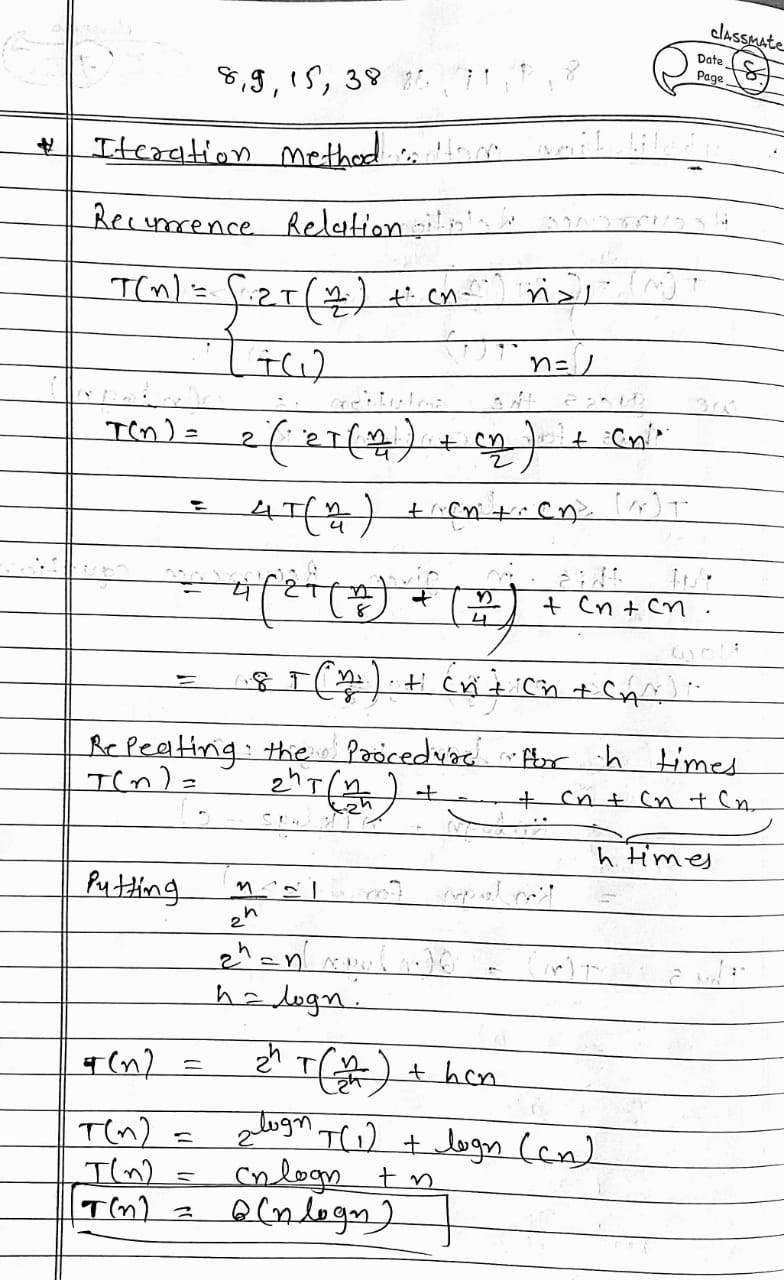 classmate
Date
Page 8
8,9, 15, 38
* Iteration Method :-
Recurrence Relation
T(n) = { 2T(n/2) + cn n>1
T(1) n=1
T(n) = 2(2T(n/4) + cn/2) + cn
= 4T(n/4) + cn + cn
= 4(2T(n/8) + (n/4) + cn + cn.
= 8T(n/8) + cn + cn + cn.
Repeating the Procedure for h times
T(n) = 2^h T(n/2^h) + ... + cn + cn + cn
h times
Putting n/2^h = 1
2^h = n
h = logn.
T(n) = 2^h T(n/2^h) + hcn
T(n) = 2^logn T(1) + logn (cn)
T(n) = cnlogn + n
T(n) = θ(n logn)